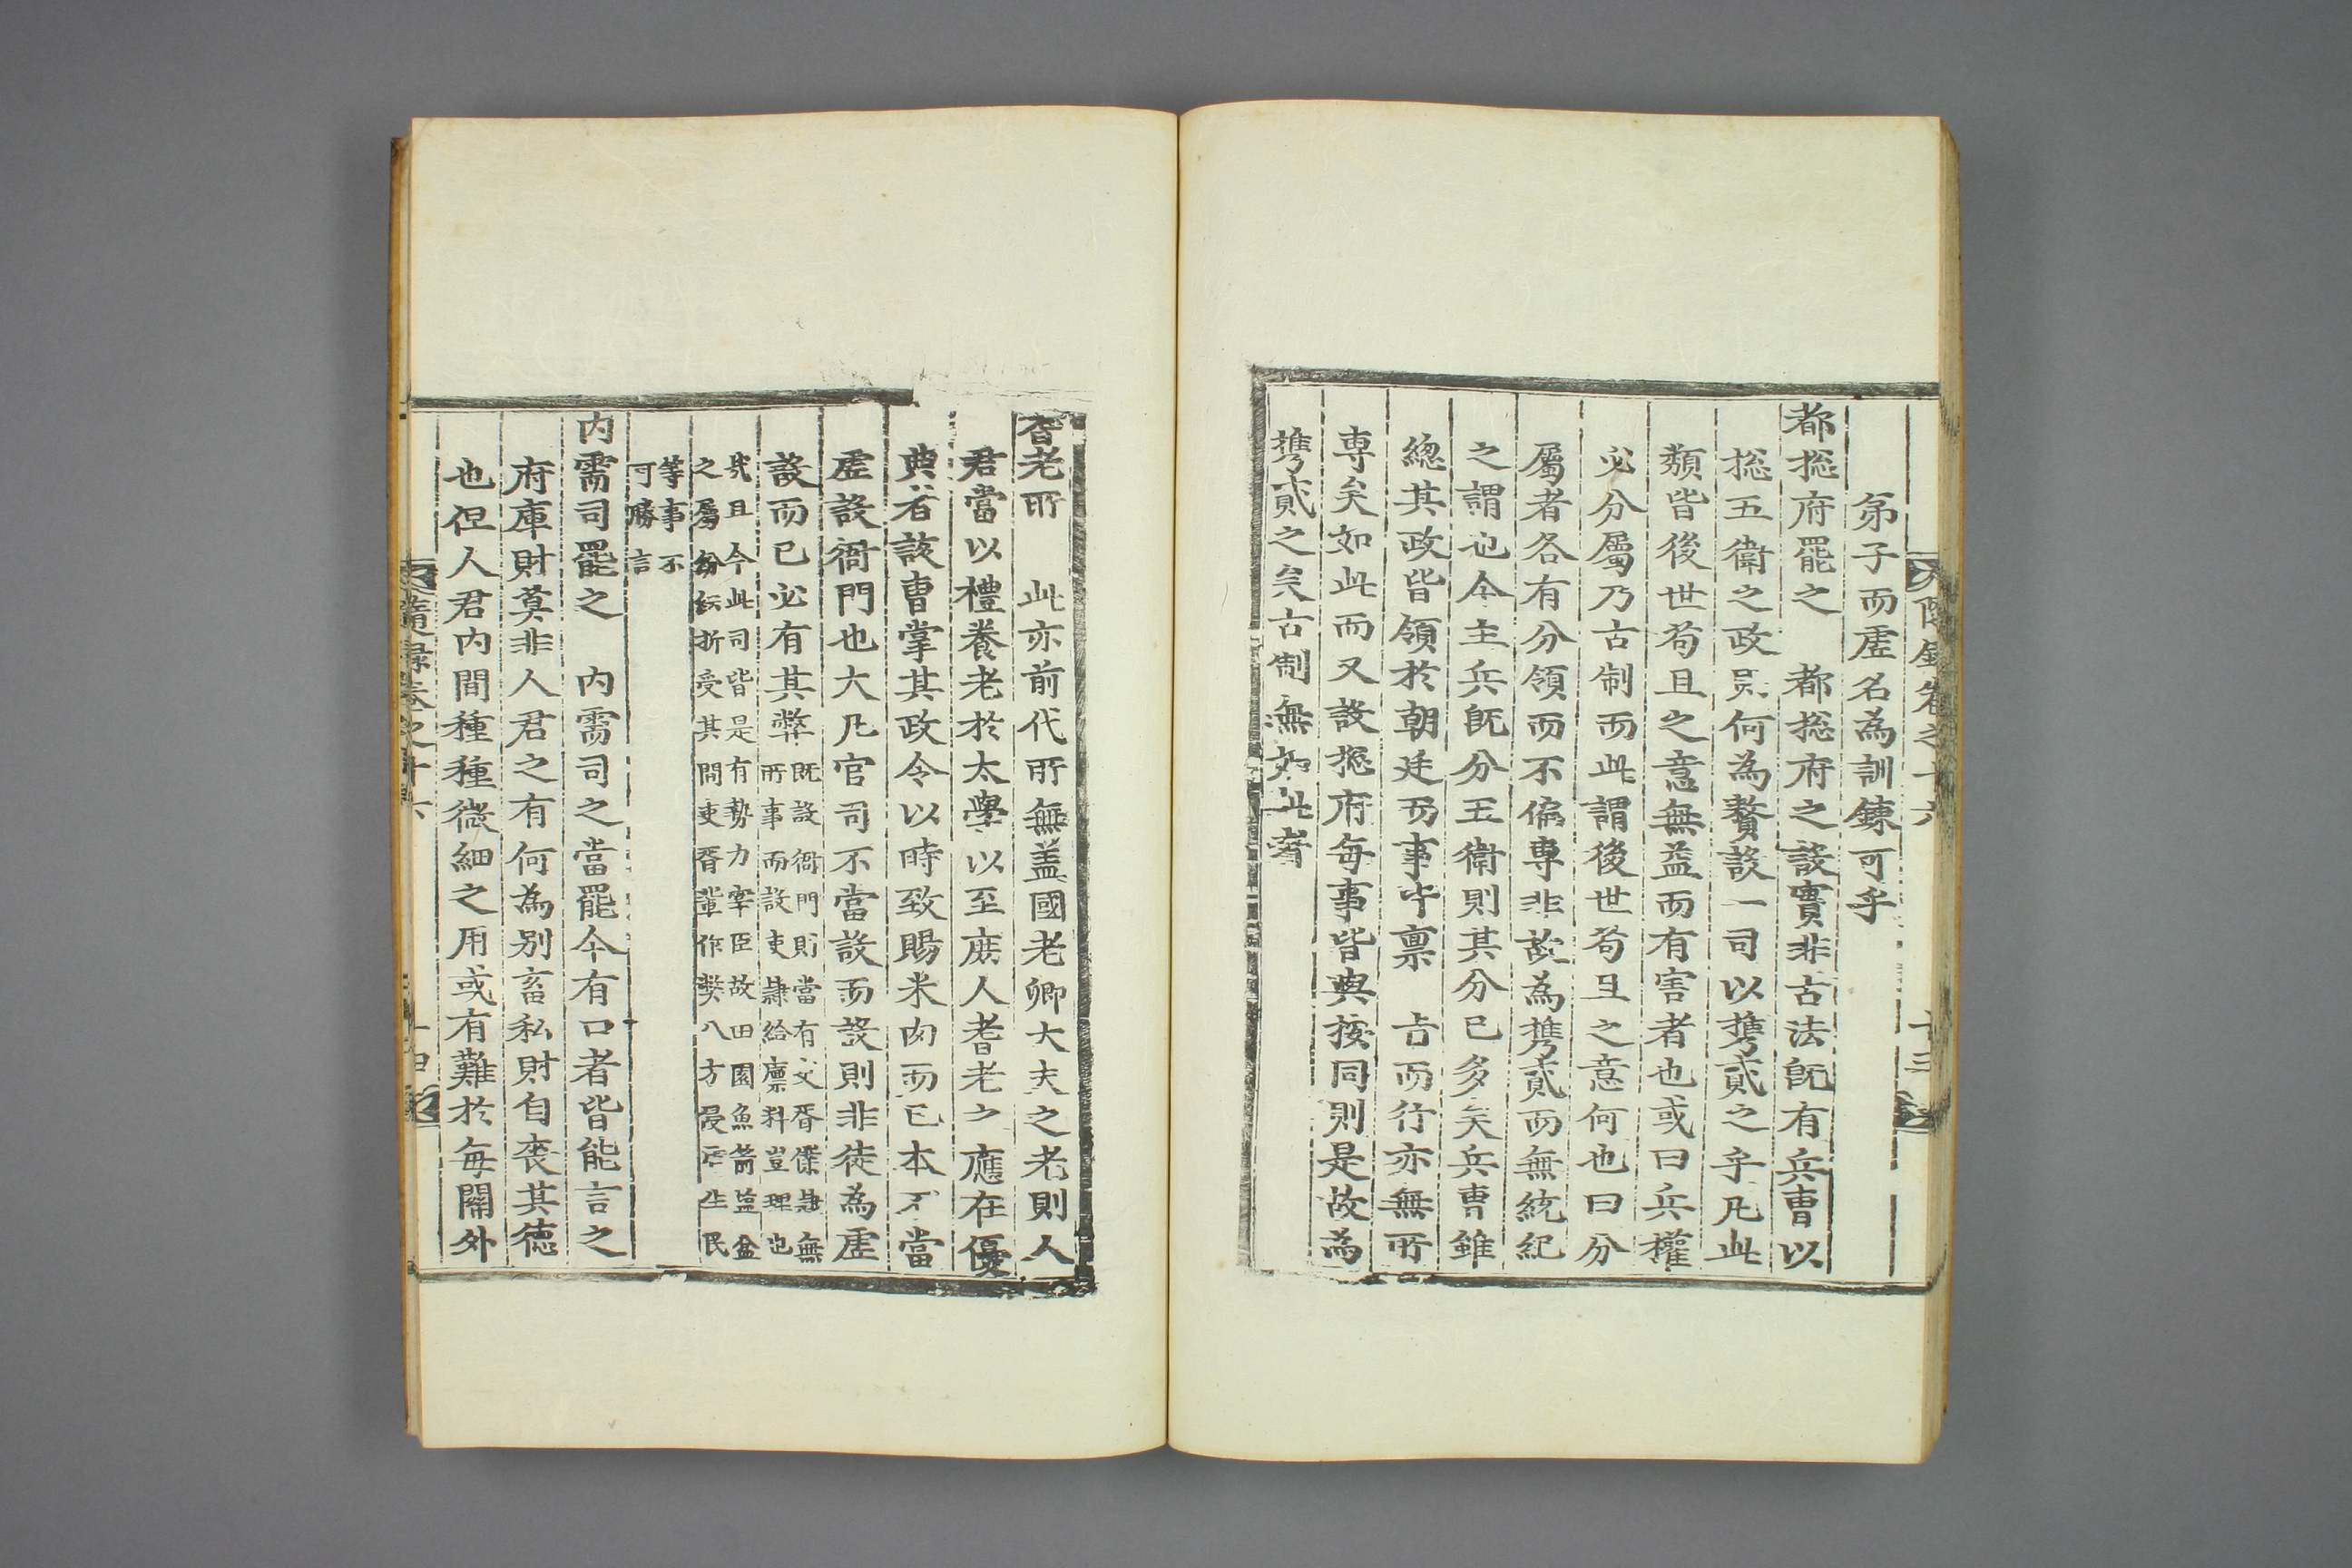 第子而虛名為訓鍊可乎
都捴府罷之 都捴府之設實非古法旣有兵曹以
捴五衛之政 何為贅設一司以攜貳之乎凡此
類皆後世苟且之意無益而有害者也或曰兵權
必分屬乃古制而此謂後世苟且之意何也曰分
屬者各有分領而不偏專非故為攜貳而無統紀
之謂也今主兵旣分五衛則其分已多矣兵曹雖
總其政皆領於朝廷而事皆稟 旨而行亦無所
專矣如此而又設捴府每事皆與按同則是故為
攜貳之矣古制無如此者
隨錄卷之十六 十三
耆老所 此亦前代所無盖國老卿大夫之老則人
君當以禮養老於太學以至庶人耆老之應在優
典者該曹掌其政令以時致賜米肉而已本不當
虛設衙門也大凡官司不當設而設則非徒為虛
設而已必有其弊 旣設衙門則當有 胥僕隷無
所事而設吏隷給廪料豈理也
况且今此司皆是有勢力宰臣故田園魚箭盐盆
之屬紛紜折受其間吏胥輩作獘八方侵虐生民
等事不
可勝言
內需司罷之 內需司之當罷今有口者皆能言之
府庫財莫非人君之有何為別畜私財自喪其德
也但人君內間種種微細之用或有難於每關外
隨錄卷之十六 十四